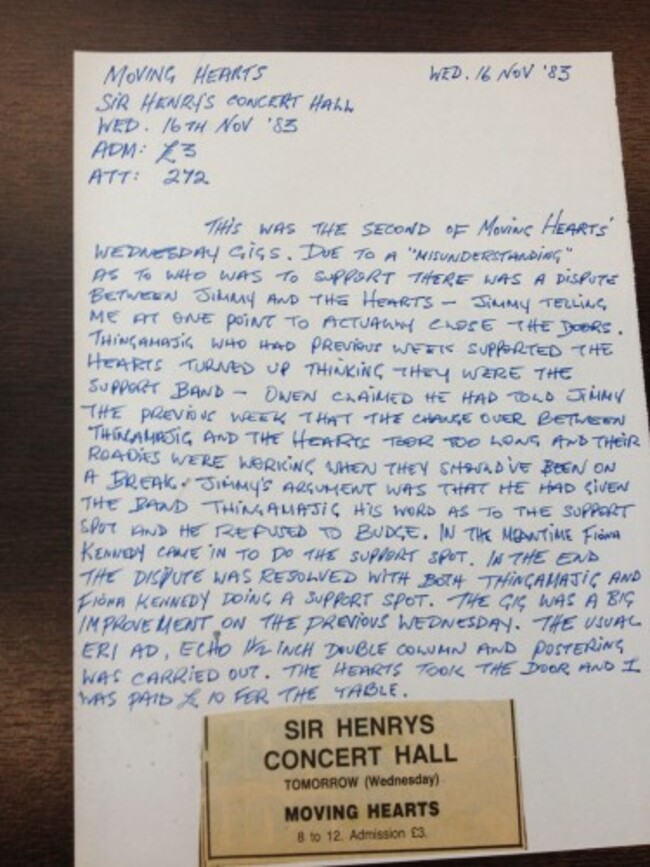 MOVING HEARTS WED. 16 NOV '83
SIR HENRY'S CONCERT HALL
WED. 16TH NOV '83
ADM: £3
ATT: 272
THIS WAS THE SECOND OF MOVING HEARTS'
WEDNESDAY GIGS. DUE TO A "MISUNDERSTANDING"
AS TO WHO WAS TO SUPPORT THERE WAS A DISPUTE
BETWEEN JIMMY AND THE HEARTS – JIMMY TELLING
ME AT ONE POINT TO ACTUALLY CLOSE THE DOORS.
THINGAMAJIG WHO HAD PREVIOUS WEEK SUPPORTED THE
HEARTS TURNED UP THINKING THEY WERE THE
SUPPORT BAND – OWEN CLAIMED HE HAD TOLD JIMMY
THE PREVIOUS WEEK THAT THE CHANGE OVER BETWEEN
THINGAMAJIG AND THE HEARTS TOOK TOO LONG AND THEIR
ROADIES WERE WORKING WHEN THEY SHOULD'VE BEEN ON
A BREAK. JIMMY'S ARGUMENT WAS THAT HE HAD GIVEN
THE BAND THINGAMAJIG HIS WORD AS TO THE SUPPORT
SPOT AND HE REFUSED TO BUDGE. IN THE MEANTIME FIONA
KENNEDY CAME IN TO DO THE SUPPORT SPOT. IN THE END
THE DISPUTE WAS RESOLVED WITH BOTH THINGAMAJIG AND
FIONA KENNEDY DOING A SUPPORT SPOT. THE GIG WAS A BIG
IMPROVEMENT ON THE PREVIOUS WEDNESDAY. THE USUAL
ERI AD, ECHO 1½ INCH DOUBLE COLUMN AND POSTERING
WAS CARRIED OUT. THE HEARTS TOOK THE DOOR AND I
WAS PAID £10 FER THE TABLE.
SIR HENRYS
CONCERT HALL
TOMORROW (Wednesday)
MOVING HEARTS
8 to 12. Admission £3.